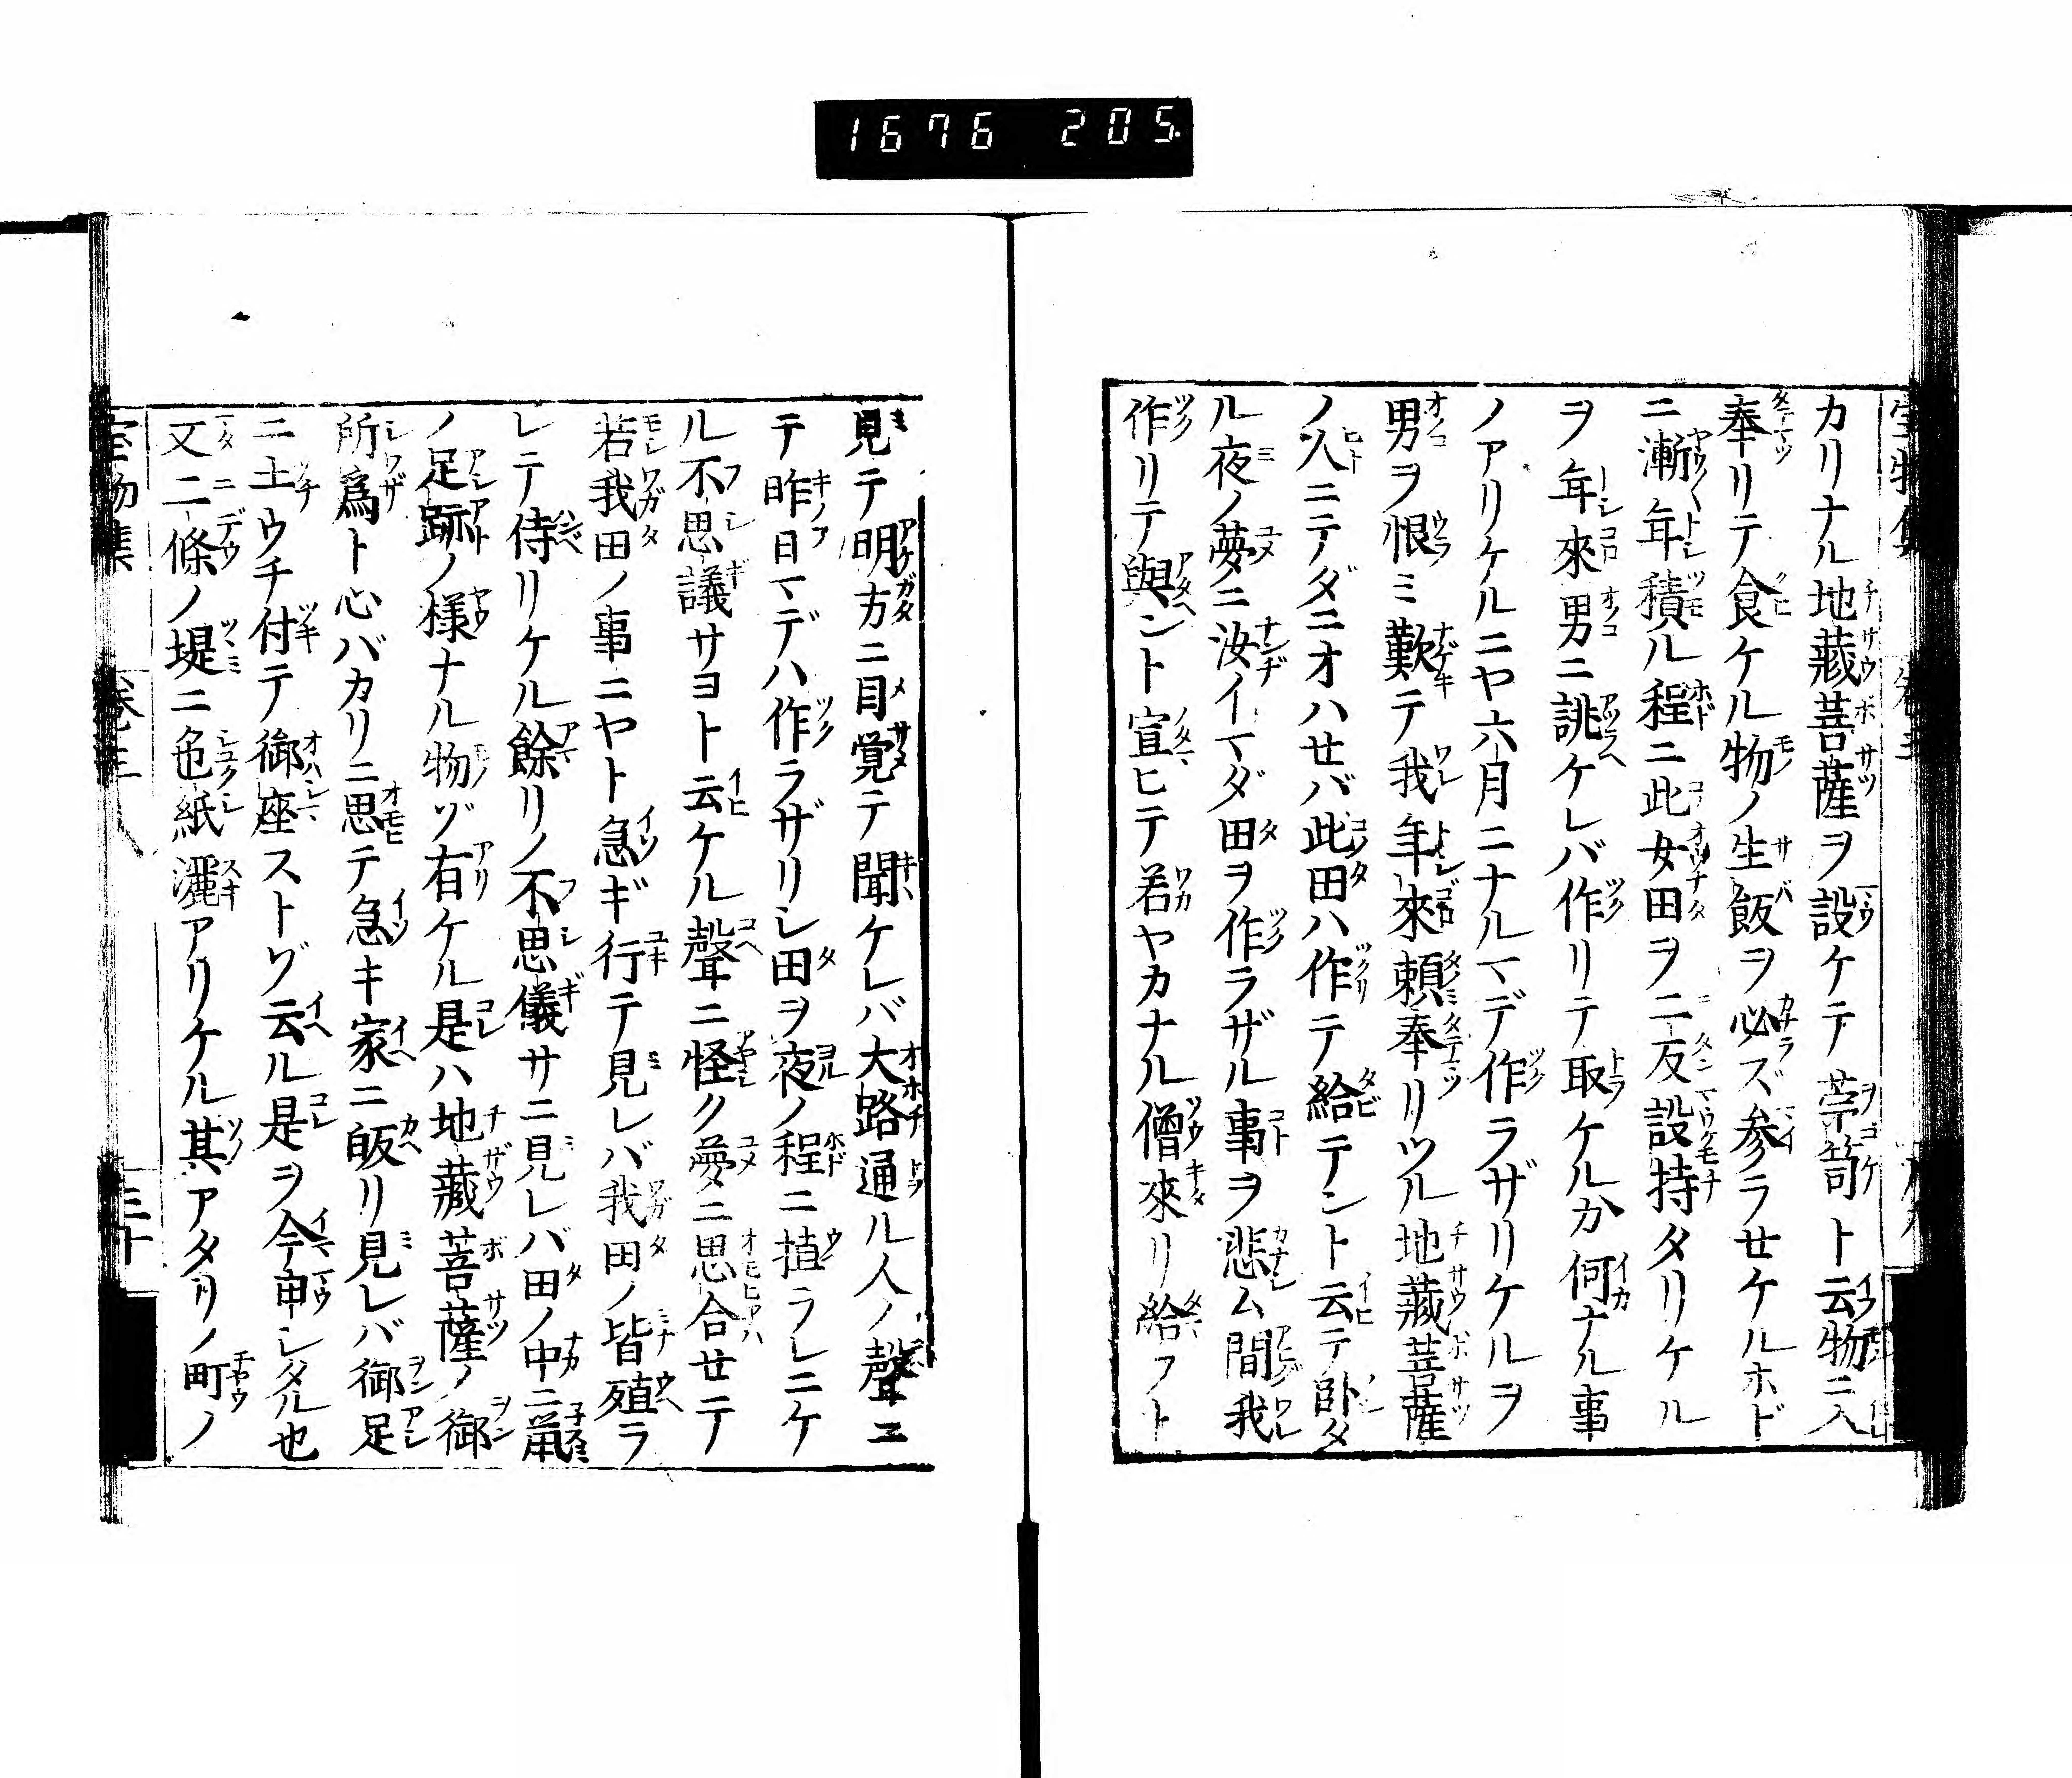 1676 205
カリナル地藏菩薩ヲ設ケテ苧笥ト云物ニ入
奉リテ食ケル物ノ生飯ヲ必ズ参ラセケルホド
ニ漸年積ル程ニ此女田ヲ二反設持タリケル
ヲ年來男ニ誂ケレバ作リテ取ケルカ何ナル事
ノアリケルニヤ六月ニナルマデ作ラザリケルヲ
男ヲ恨ミ歎テ我年來頼奉リツル地藏菩薩
ノ人ニテダニオハセバ此田ハ作テ給テント云テ卧タ
ル夜ノ夢ニ汝イマダ田ヲ作ラザル事ヲ悲ム間我
作リテ與ント宣ヒテ若ヤカナル僧來リ給フト
見テ明方ニ目覚テ聞ケレバ大路通ル人ノ聲ニ
テ昨日マデハ作ラザリシ田ヲ夜ノ程ニ植ラレニケ
ル不思議サヨト云ケル聲ニ怪ク夢ニ思合セテ
若我田ノ事ニヤト急ギ行テ見レバ我田ノ皆殖ラ
レテ侍リケル餘リノ不思儀サニ見レバ田ノ中ニ鼠
ノ足跡ノ様ナル物ゾ有ケル是ハ地藏菩薩ノ御
所爲ト心バカリニ思テ急キ家ニ皈リ見レバ御足
ニ土ウチ付テ御座ストゾ云ル是ヲ今申シタル也
又二條ノ堤ニ色紙灑アリケル其アタリノ町ノ
宝物集 卷三 三十